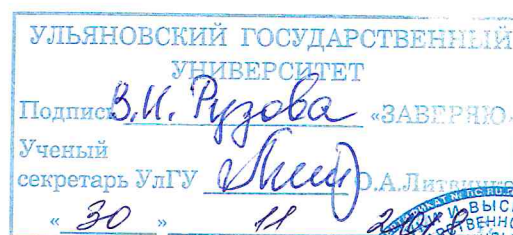 УЛЬЯНОВСКИЙ ГОСУДАРСТВЕННЫЙ
УНИВЕРСИТЕТ
Подпись В.И. Рузова «ЗАВЕРЯЮ»
Ученый
секретарь УлГУ О.А.Литвинко
« 30 » 11